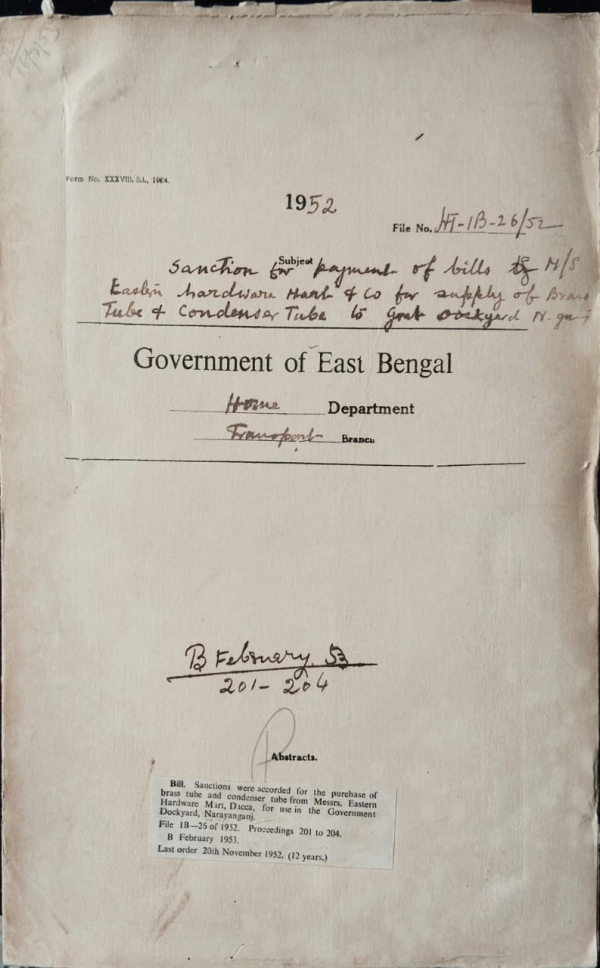 Form No. XXXVIII. S.L., 1964.
1952
File No. HT-1B-26/52
Subject
Sanction for payment of bills of M/S
Eastern hardware Mart & Co for supply of Brass
Tube & Condenser Tube to Govt Dockyard N. ganj
Government of East Bengal
Home Department
Transport Branch
B February 53
201-204
Abstracts.
Bill. Sanctions were accorded for the purchase of
brass tube and condenser tube from Messrs. Eastern
Hardware Mart, Dacca, for use in the Government
Dockyard, Narayanganj.
File 1B—26 of 1952. Proceedings 201 to 204.
B February 1953.
Last order 20th November 1952. (12 years.)